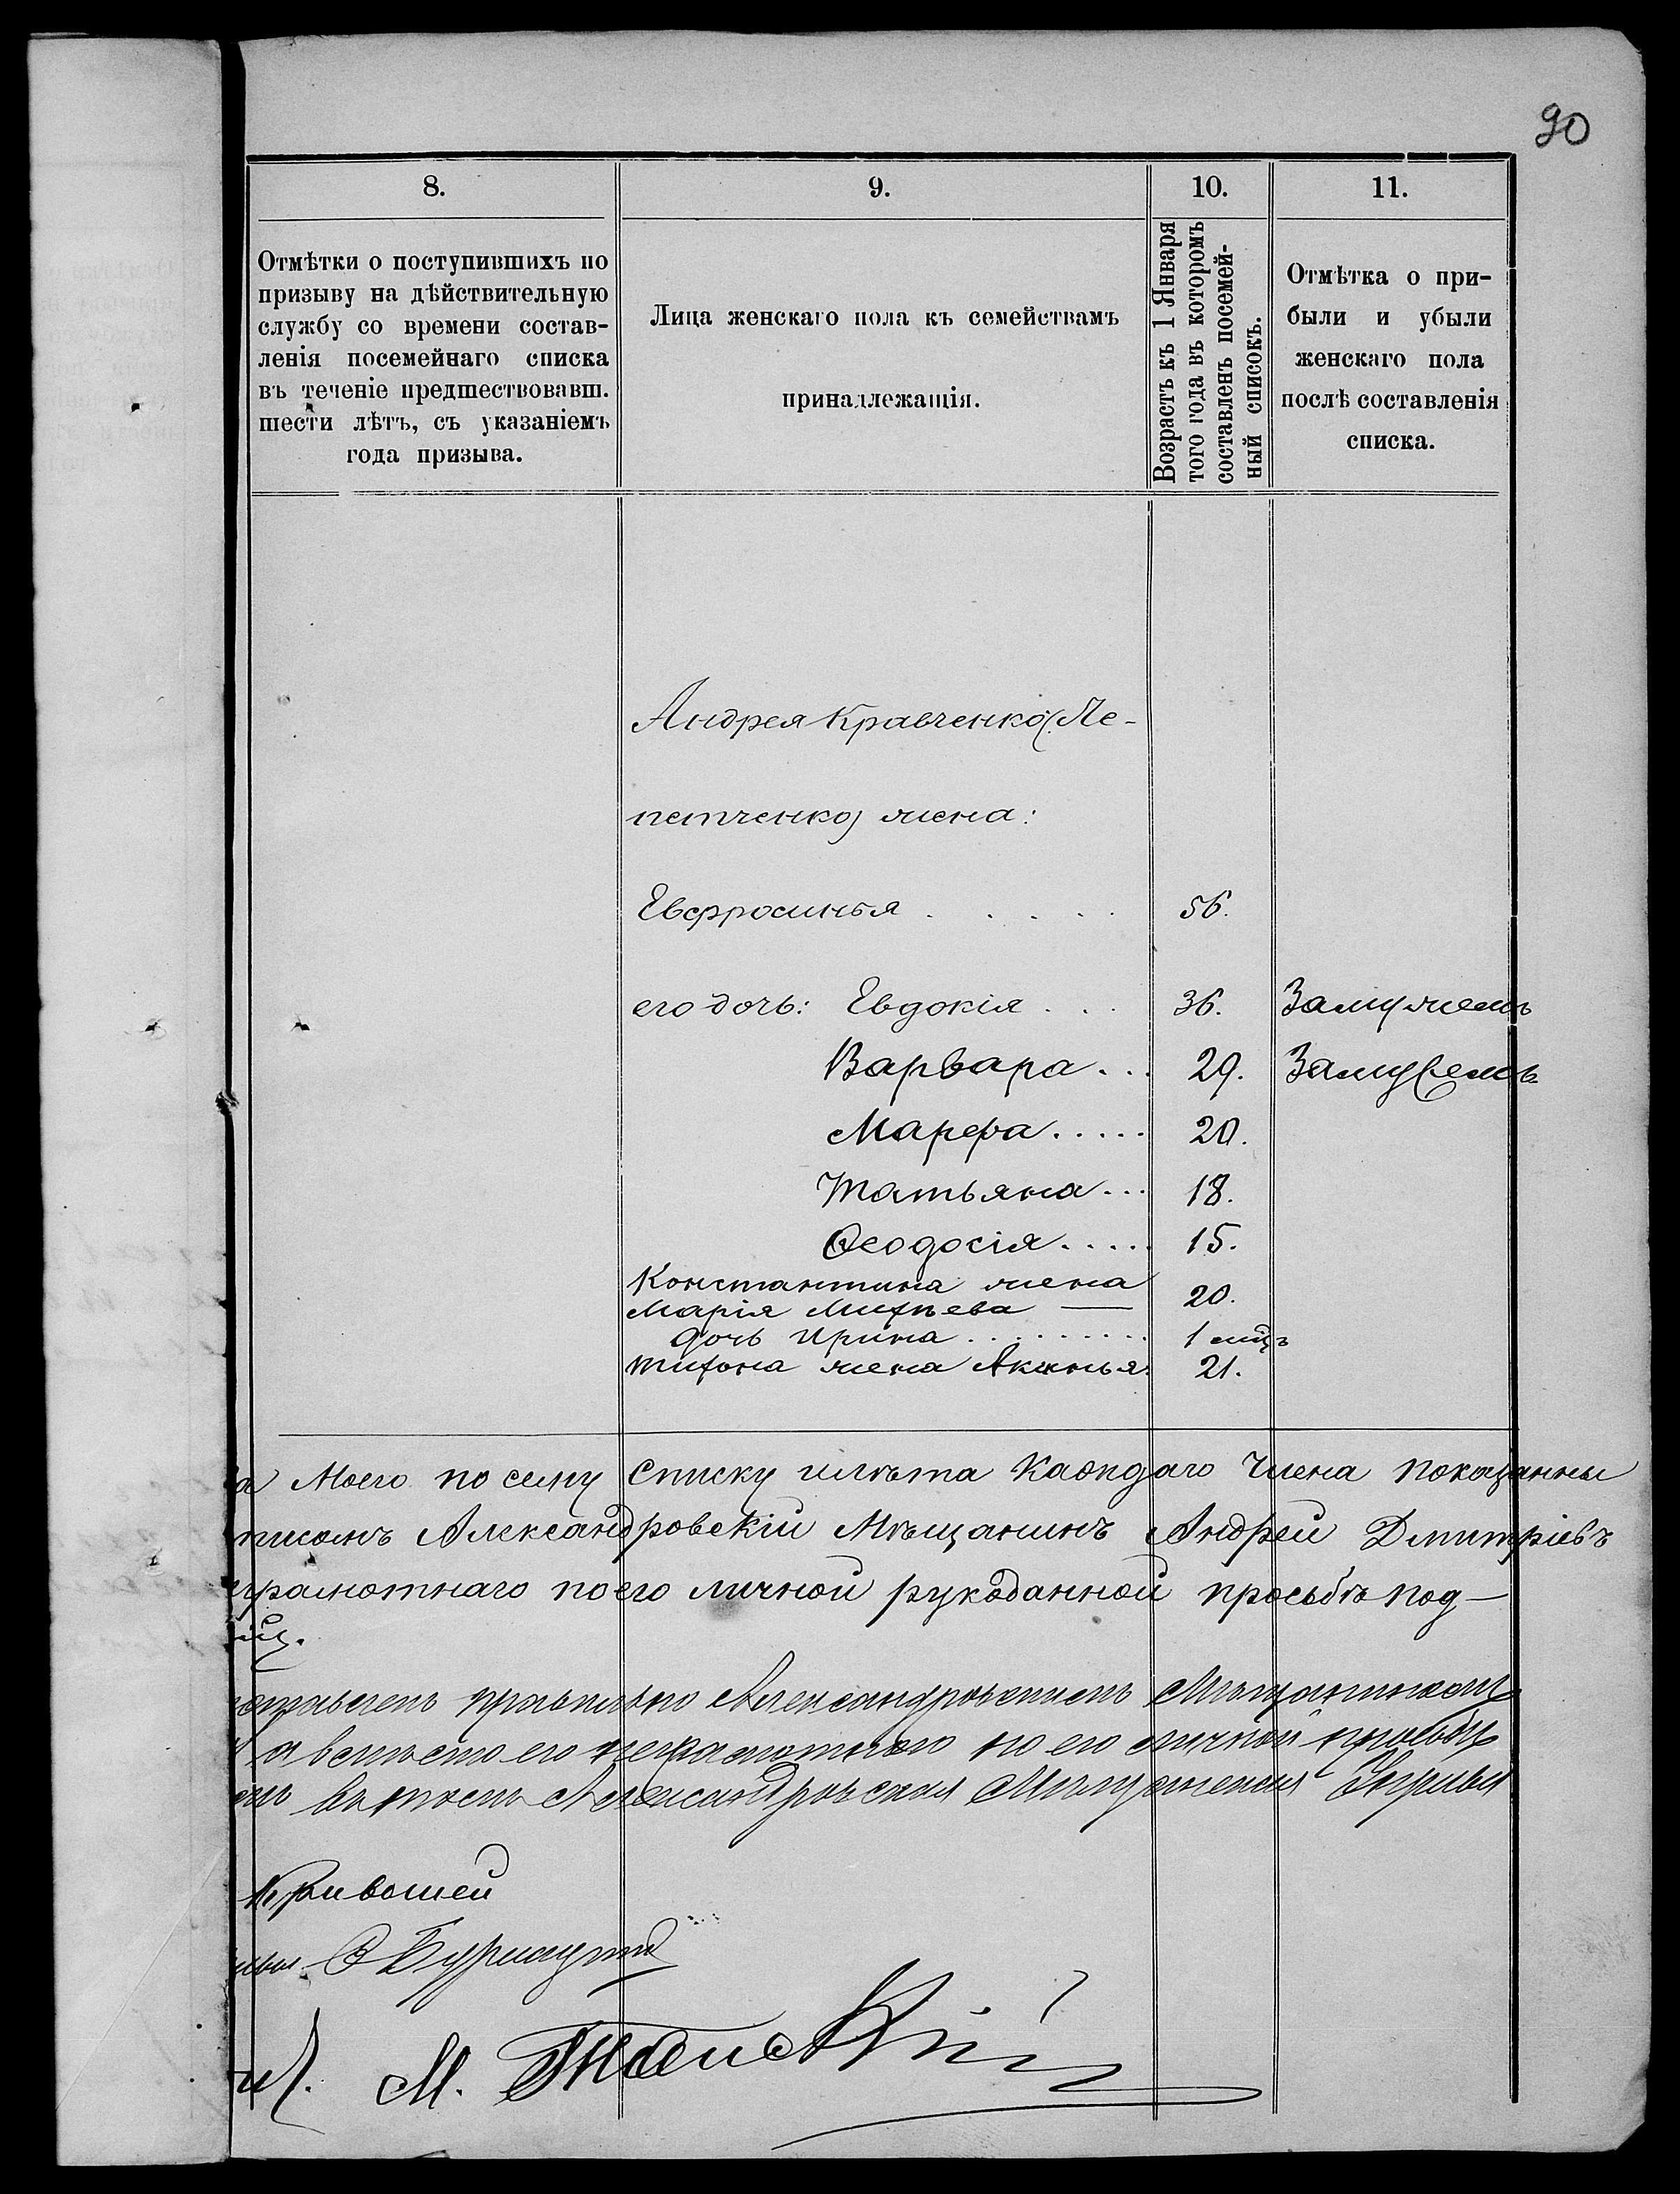 90
8.
9.
10.
11.
Отмѣтки о поступившихъ по
призыву на дѣйствительную
службу со времени состав-
ленія посемейнаго списка
въ теченіе предшествовавш.
шести лѣтъ, съ указаніемъ
года призыва.
Лица женскаго пола къ семействамъ
принадлежащія.
Возрастъ къ 1 Января
того года въ которомъ
составленъ посемей-
ный списокъ.
Отмѣтка о при-
были и убыли
женскаго пола
послѣ составленія
списка.
Андрея Кравченко (Ле-
петченко) жена:
Евфросинья . . . . . 56.
его дочь: Евдокія . . . 36. Замужемъ
Варвара . . . 29. Замужемъ
Марфа . . . . . 20.
Татьяна . . . 18.
Ѳеодосія . . . . . 15.
Константина жена
Марія Михѣева — 20.
дочь Ирина . . . . . . . . . 1 мѣц
Тихона жена Акинья. 21.
а Моего по сему Списку и лѣта Каждаго Члена показанны
писанъ Александровскій Мѣщанинъ Андрей Дмитріевъ
грамотнаго по его личной рукоданной просьбѣ под-
ставленъ правильно Александровскимъ Мѣщаниномъ
а вмѣсто его неграмотного по его личной прозьбѣ
Александровская Мѣщанская Управа
Кривошей
М.